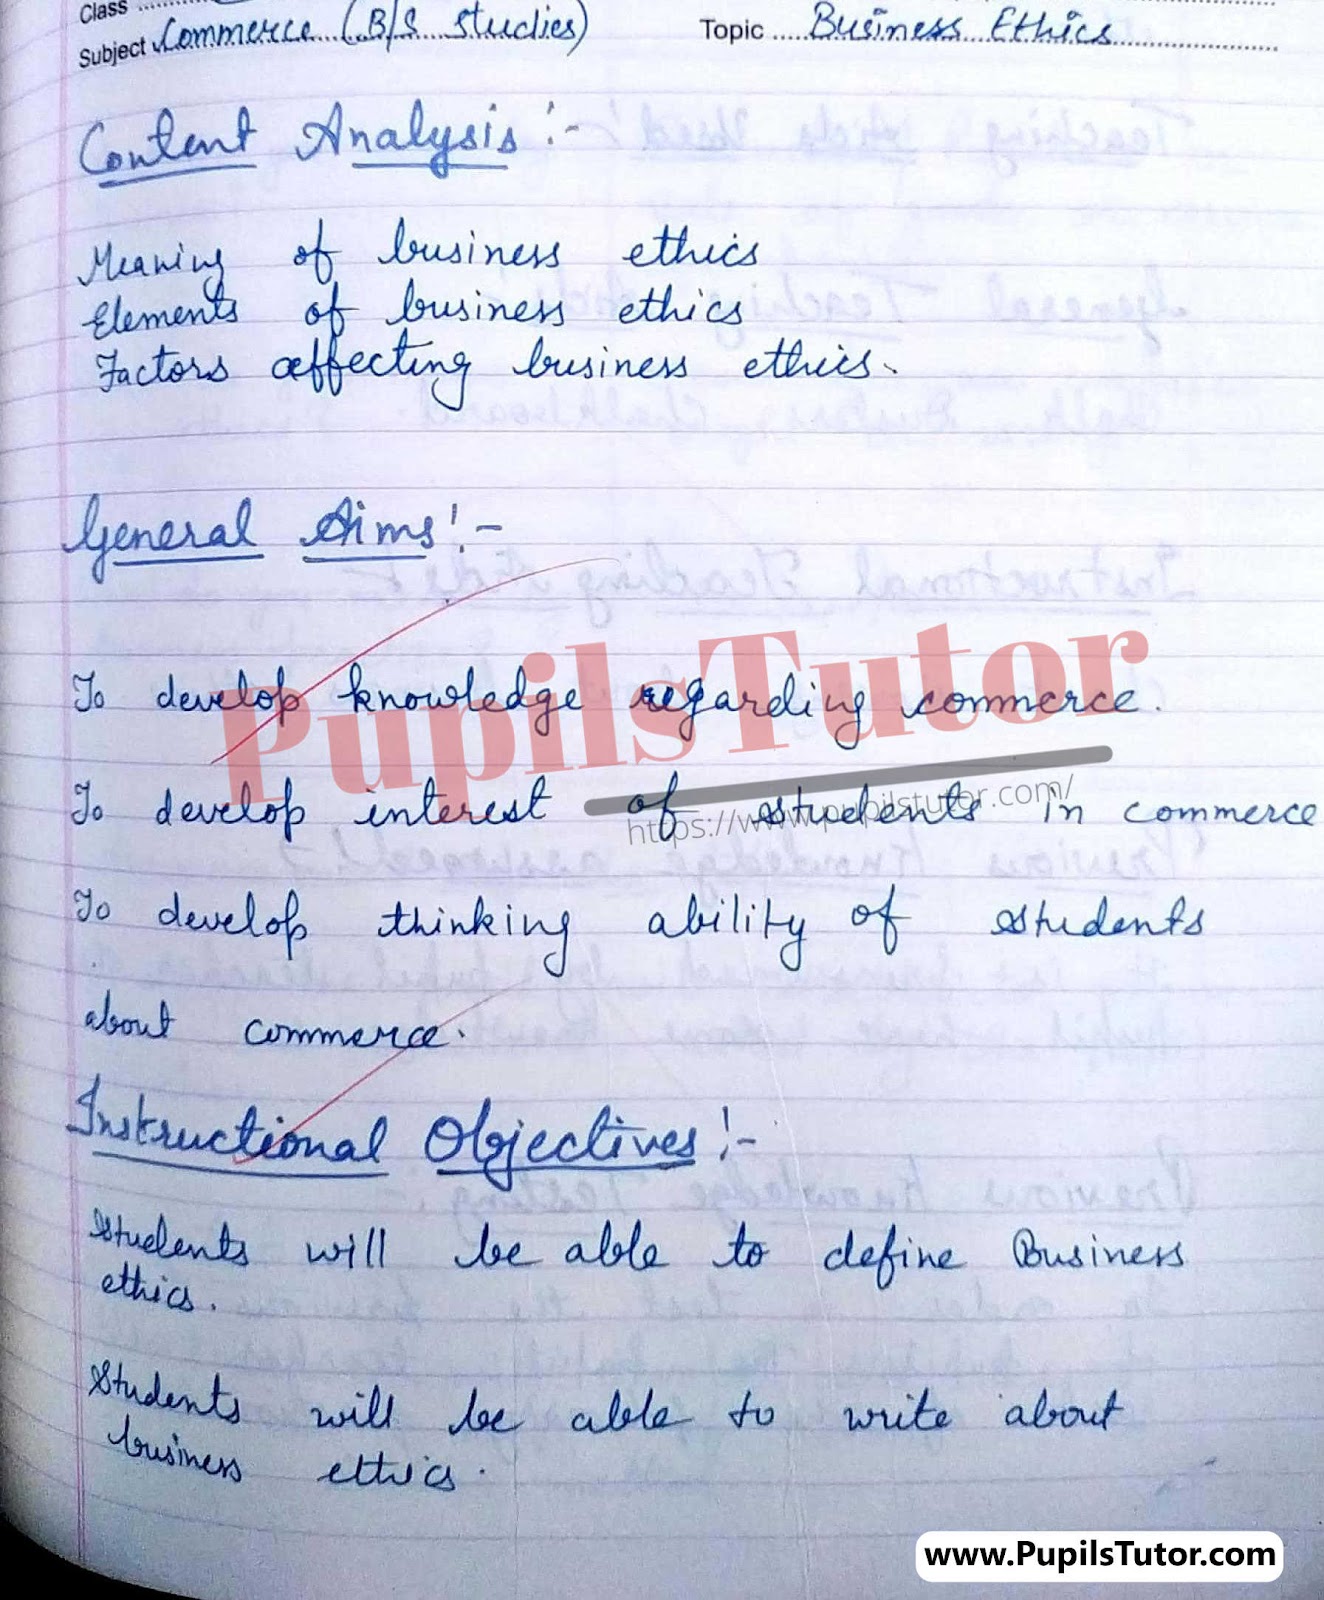 Class
Subject Commerce (B/S Studies) Topic Business Ethics
Content Analysis :-
Meaning of business ethics
Elements of business ethics
Factors affecting business ethics.
General Aims :-
To develop knowledge regarding commerce.
PupilsTutor
To develop interest of students in commerce
https://www.pupilstutor.com/
To develop thinking ability of students
about commerce.
Instructional Objectives :-
Students will be able to define Business
ethics.
Students will be able to write about
business ethics.
www.PupilsTutor.com